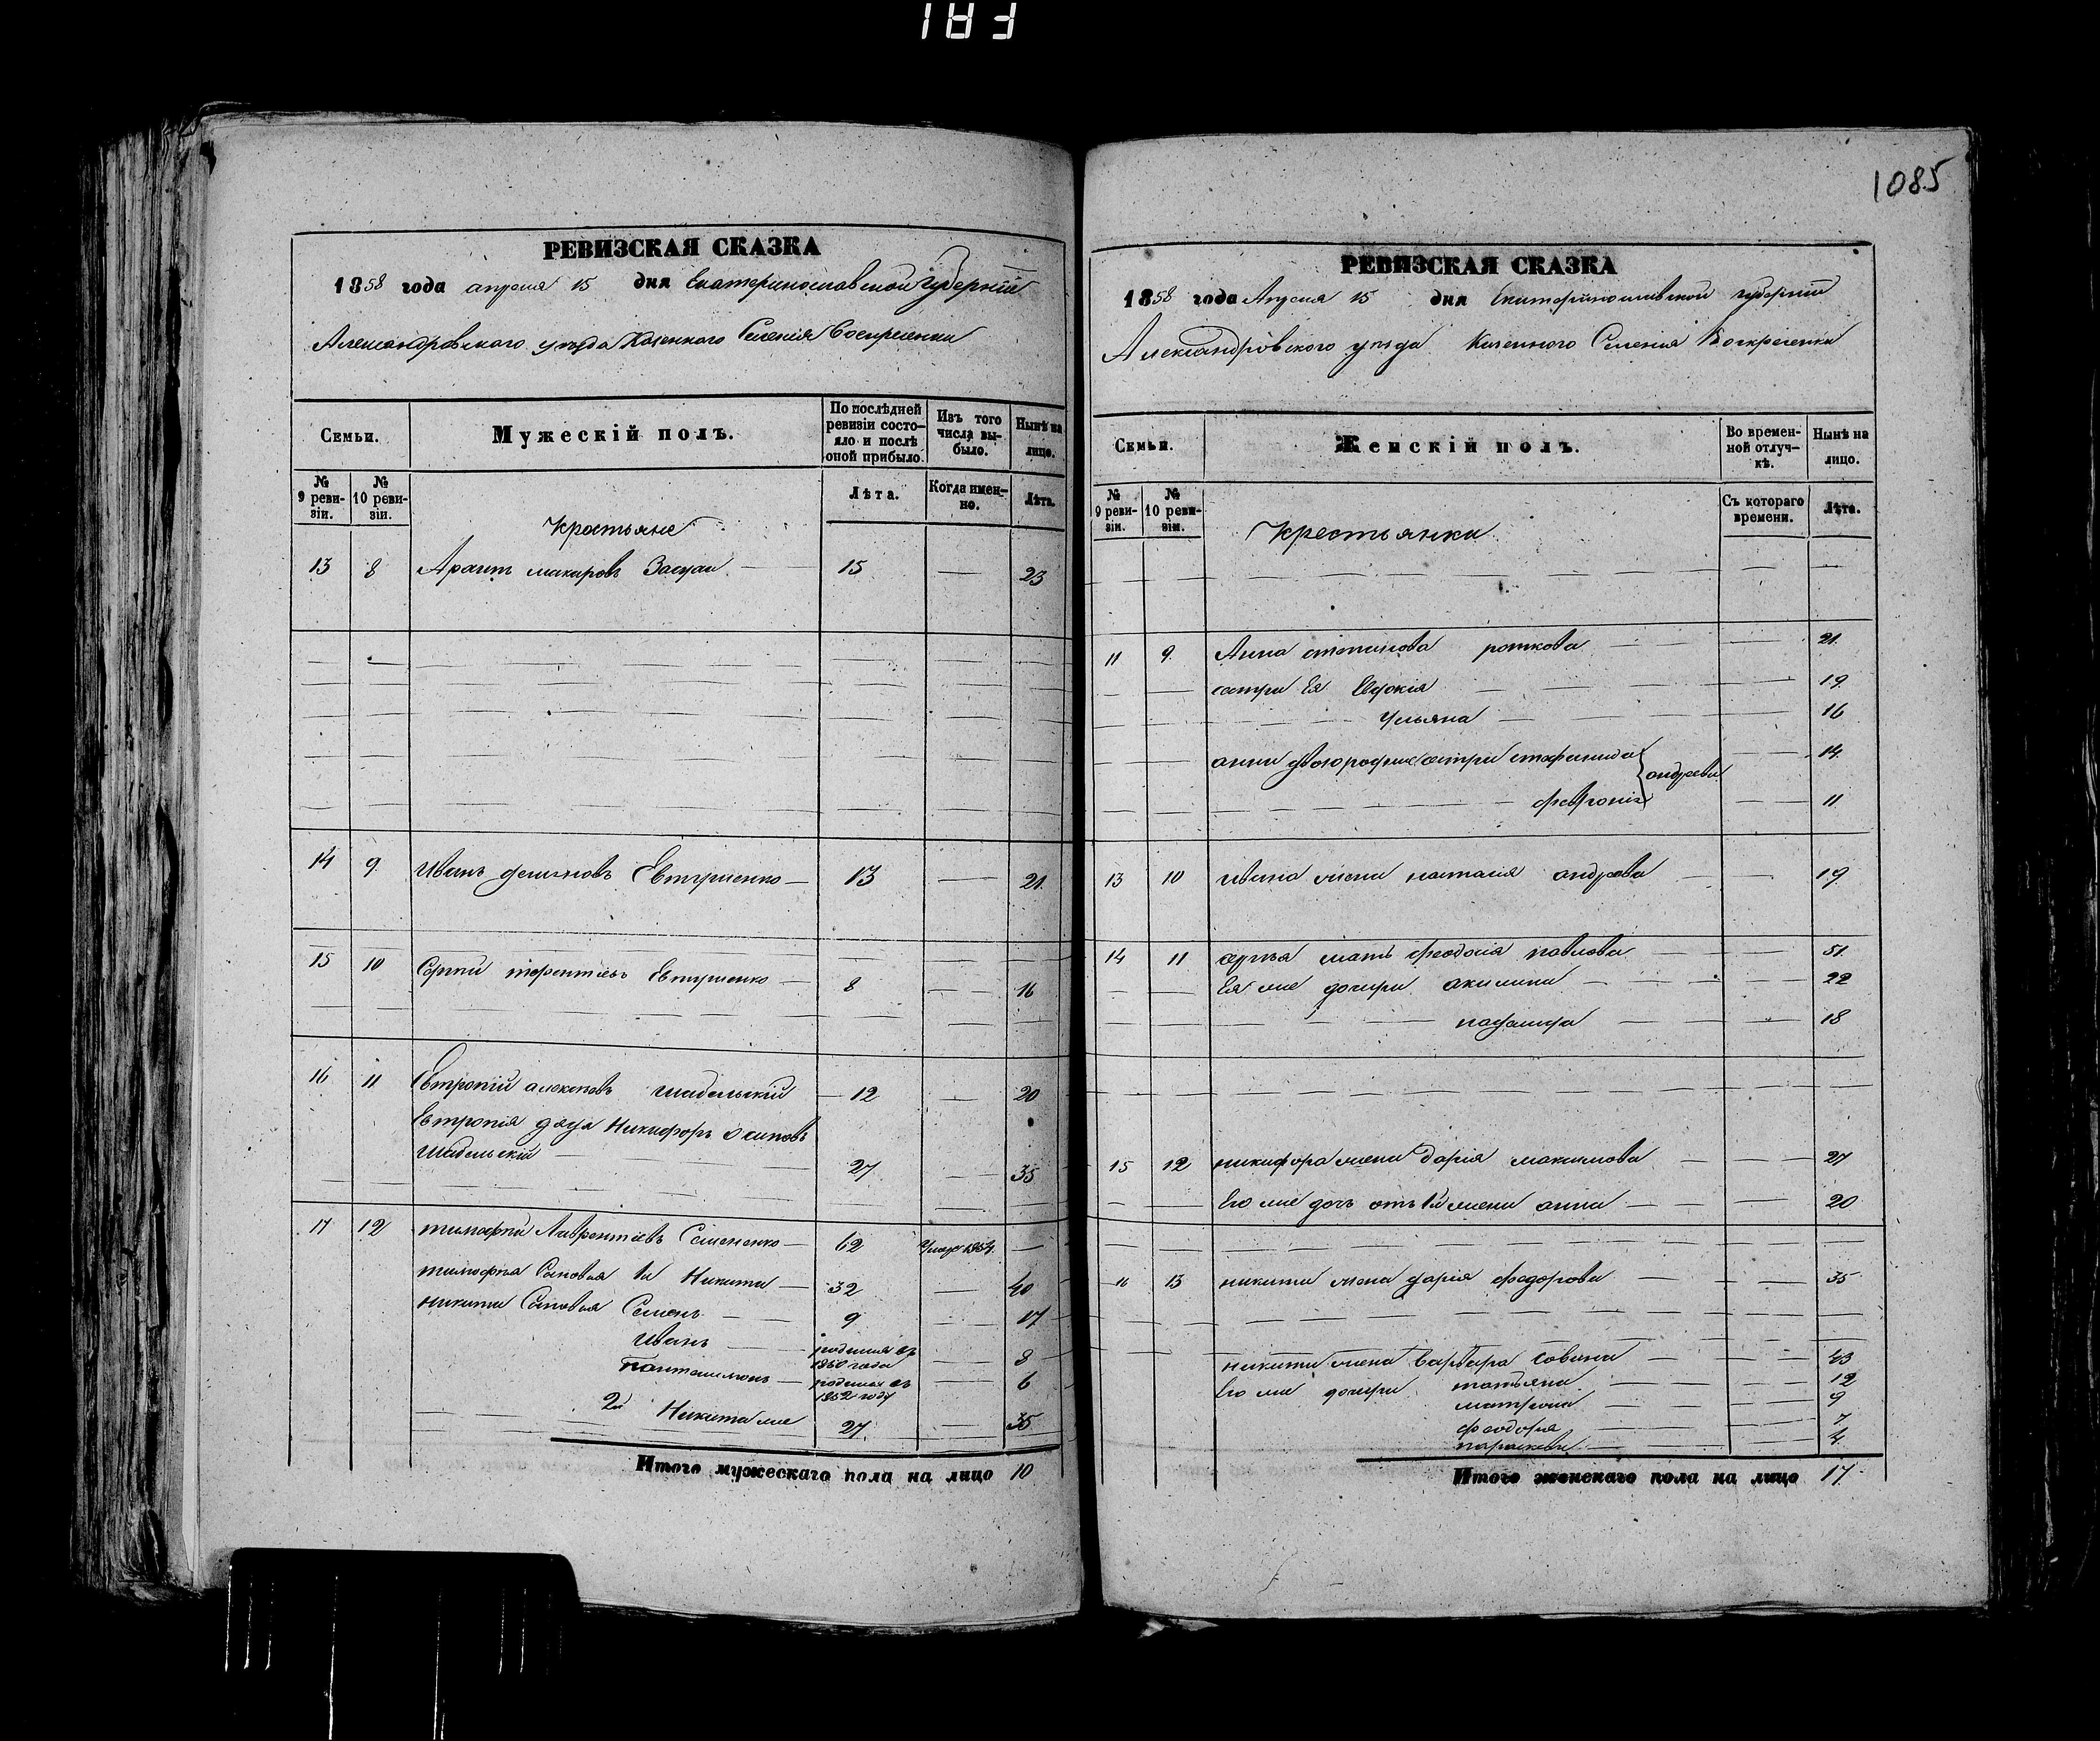 1085
РЕВИЗСКАЯ СКАЗКА
1858 года апреля 15 дня Екатеринославской Губерніи
Александровского уезда Казенного Селенія Воскресенки
Семьи.
Мужескій полъ.
По послѣдней ревизіи состояло и послѣ оной прибыло.
Изъ того числа выбыло.
Нынѣ на лицо.
№ 9 ревизіи.
№ 10 ревизіи.
Лѣта.
Когда именно.
Лѣта.
Крестьяне
13 8 макаровъ 15 — 23
14 9 Иванъ Евтушенко — 13 — 21
15 10 Сергій терентіевъ Евтушенко — 8 — 16
16 11 Евтропій алексеевъ — 12 — 20
Евтропія дядя Никифоръ Осиповъ
— 27 — 35
17 12 тимофей Лаврентіевъ Семененко — 62 1854 —
тимофея Сыновья 1й Никита — 32 — 40
никиты Сыновья Семенъ — 9 — 17
Иванъ — родился въ 1850 года — 8
пантелимонъ — родился въ 1852 году — 6
2й Никита же 27 — 35
Итого мужескаго пола на лицо 10
РЕВИЗСКАЯ СКАЗКА
1858 года Апреля 15 дня Екатеринославской губерніи
Александровского уезда Казенного Селенія Воскресенки
Семьи.
Женскій полъ.
Во временной отлучкѣ.
Нынѣ на лицо.
№ 9 ревизіи.
№ 10 ревизіи.
Съ котораго времени.
Лѣта.
Крестьянки
11 9 Анна степанова — 21
сестры Ея Евдокія — 19
Ульяна — 16
анны двоюродные сестры стефанида } андреевы — 14
феврония — 11
13 10 ивана жена наталія андреева — 19
14 11 сергея мать феодосія павлова — 51
Ея же дочери акилина — 22
— 18
15 12 никифора жена Дарія максимова — 27
Его же дочь отъ 1й жены анна — 20
13 никиты жена дарія федорова — 35
никиты жена варвара Савина — 43
Его же дочери татьяна — 12
матрона — 9
феодосія — 7
параскева — 4
Итого женскаго пола на лицо 17